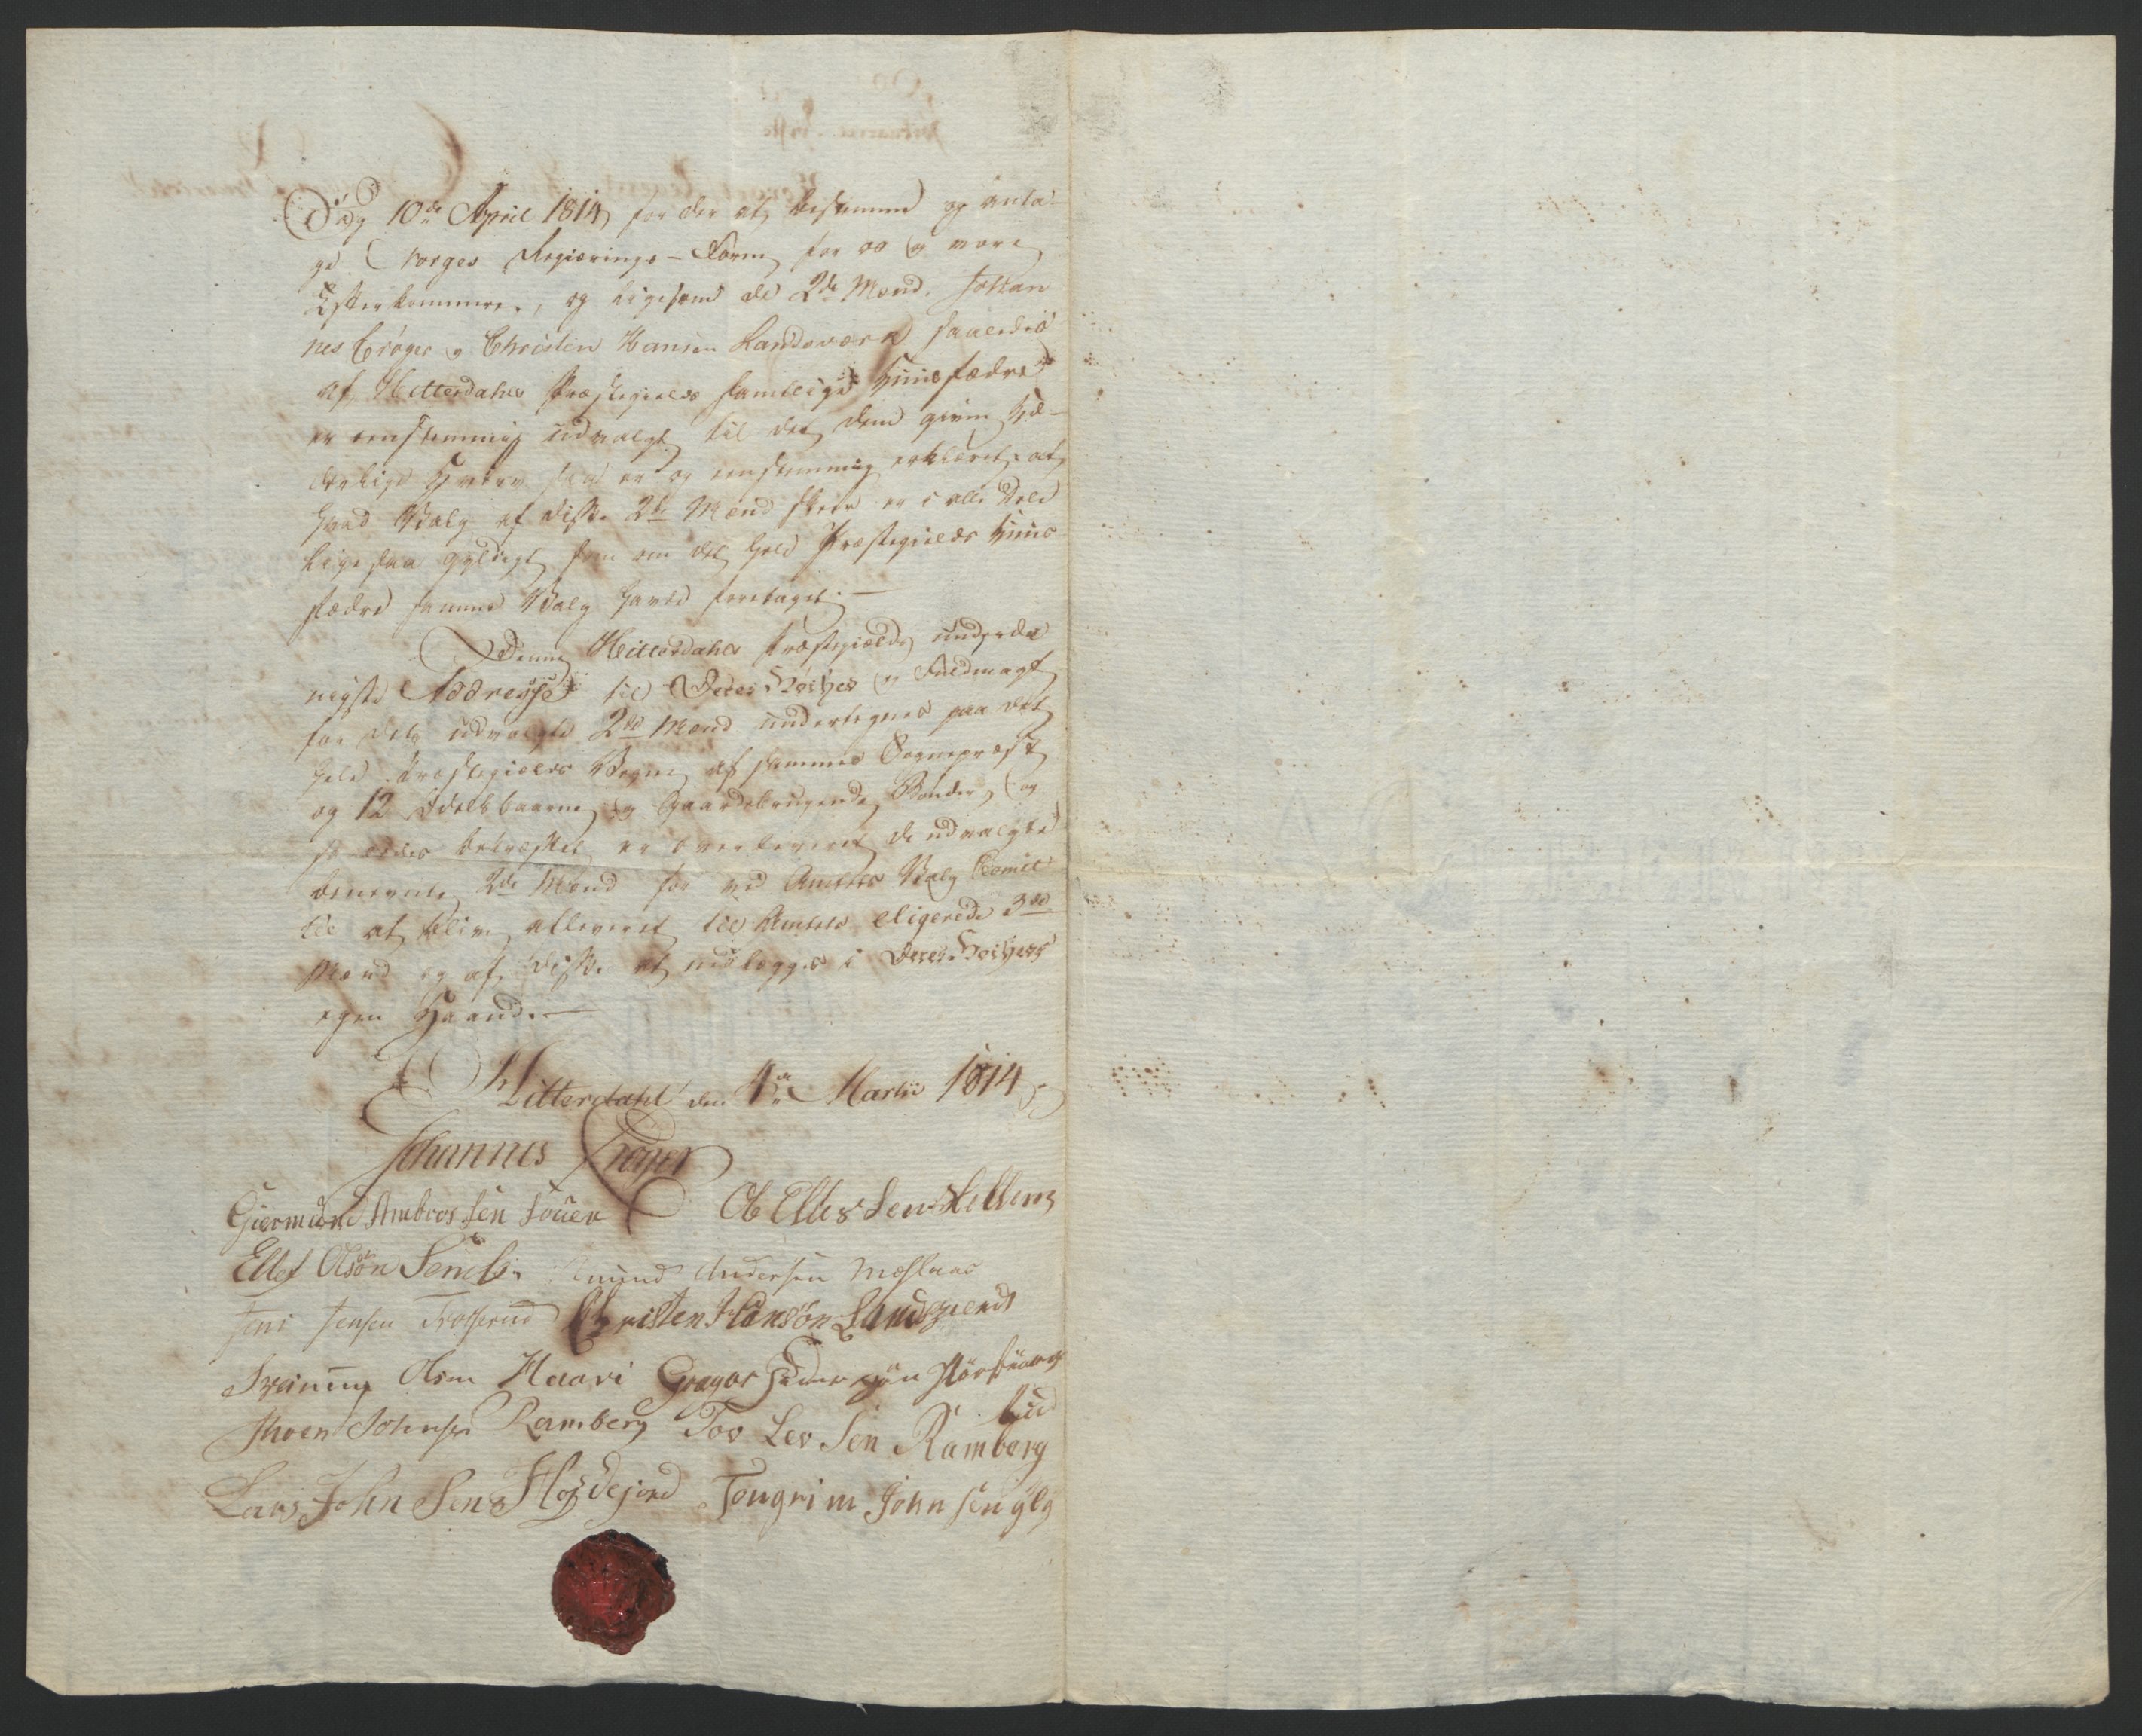 Dag 10de April 1814 for der at bestemme og anta-
ge Norges Regierings-Form for os og vore
Efterkommere, og ligesom de 2de Mænd, Johan
nes Crøger og Christen Hansen Landsværk saaledes
af Hitterdahls Præstegields samtlige Huusfædre
er eenstemmig udvalgt til det dem given hæ-
derlige Hverv, saa er og eenstemmig erklæret: at
hvad Valg af disse 2de Mænd skeer er i alle Dele
ligesaa gyldigt som om det hele Præstegields Huus
fædre samme Valg havde foretaget. —
Denne Hitterdahls Præstegields underda
nigste Addresse til Deres Høihed og Fuldmagt
for dets udvalgte 2de Mænd undertegnes paa det
hele Præstegields Vegne af sammes Sognepræst
og 12 Odelsbaarne og Gaardebrugende Bønder, og
bekræftet er overleveret de udvalgte
benevnte 2de Mænd for ved Amtets Valg Comit
tee at blive afleveret til Amtets eligerede 3de
Mænd og af disse at nedlægges i Deres Høiheds
egen Haand. —
Hitterdahl den 4de Martii 1814
Johannes Crøger
Giermund Ambros Sen Ole Elles Sen
Ellef Olsøn Sem Amund Andersen Mæslans
Jens Jensen Trosserud Christen Hansøn Landsverk
Svening Olsen Haave Gregar søn
rud
Johnsen Ramberg Tov Lev Sen Ramberg
Lars John Sen Tongrim John sen